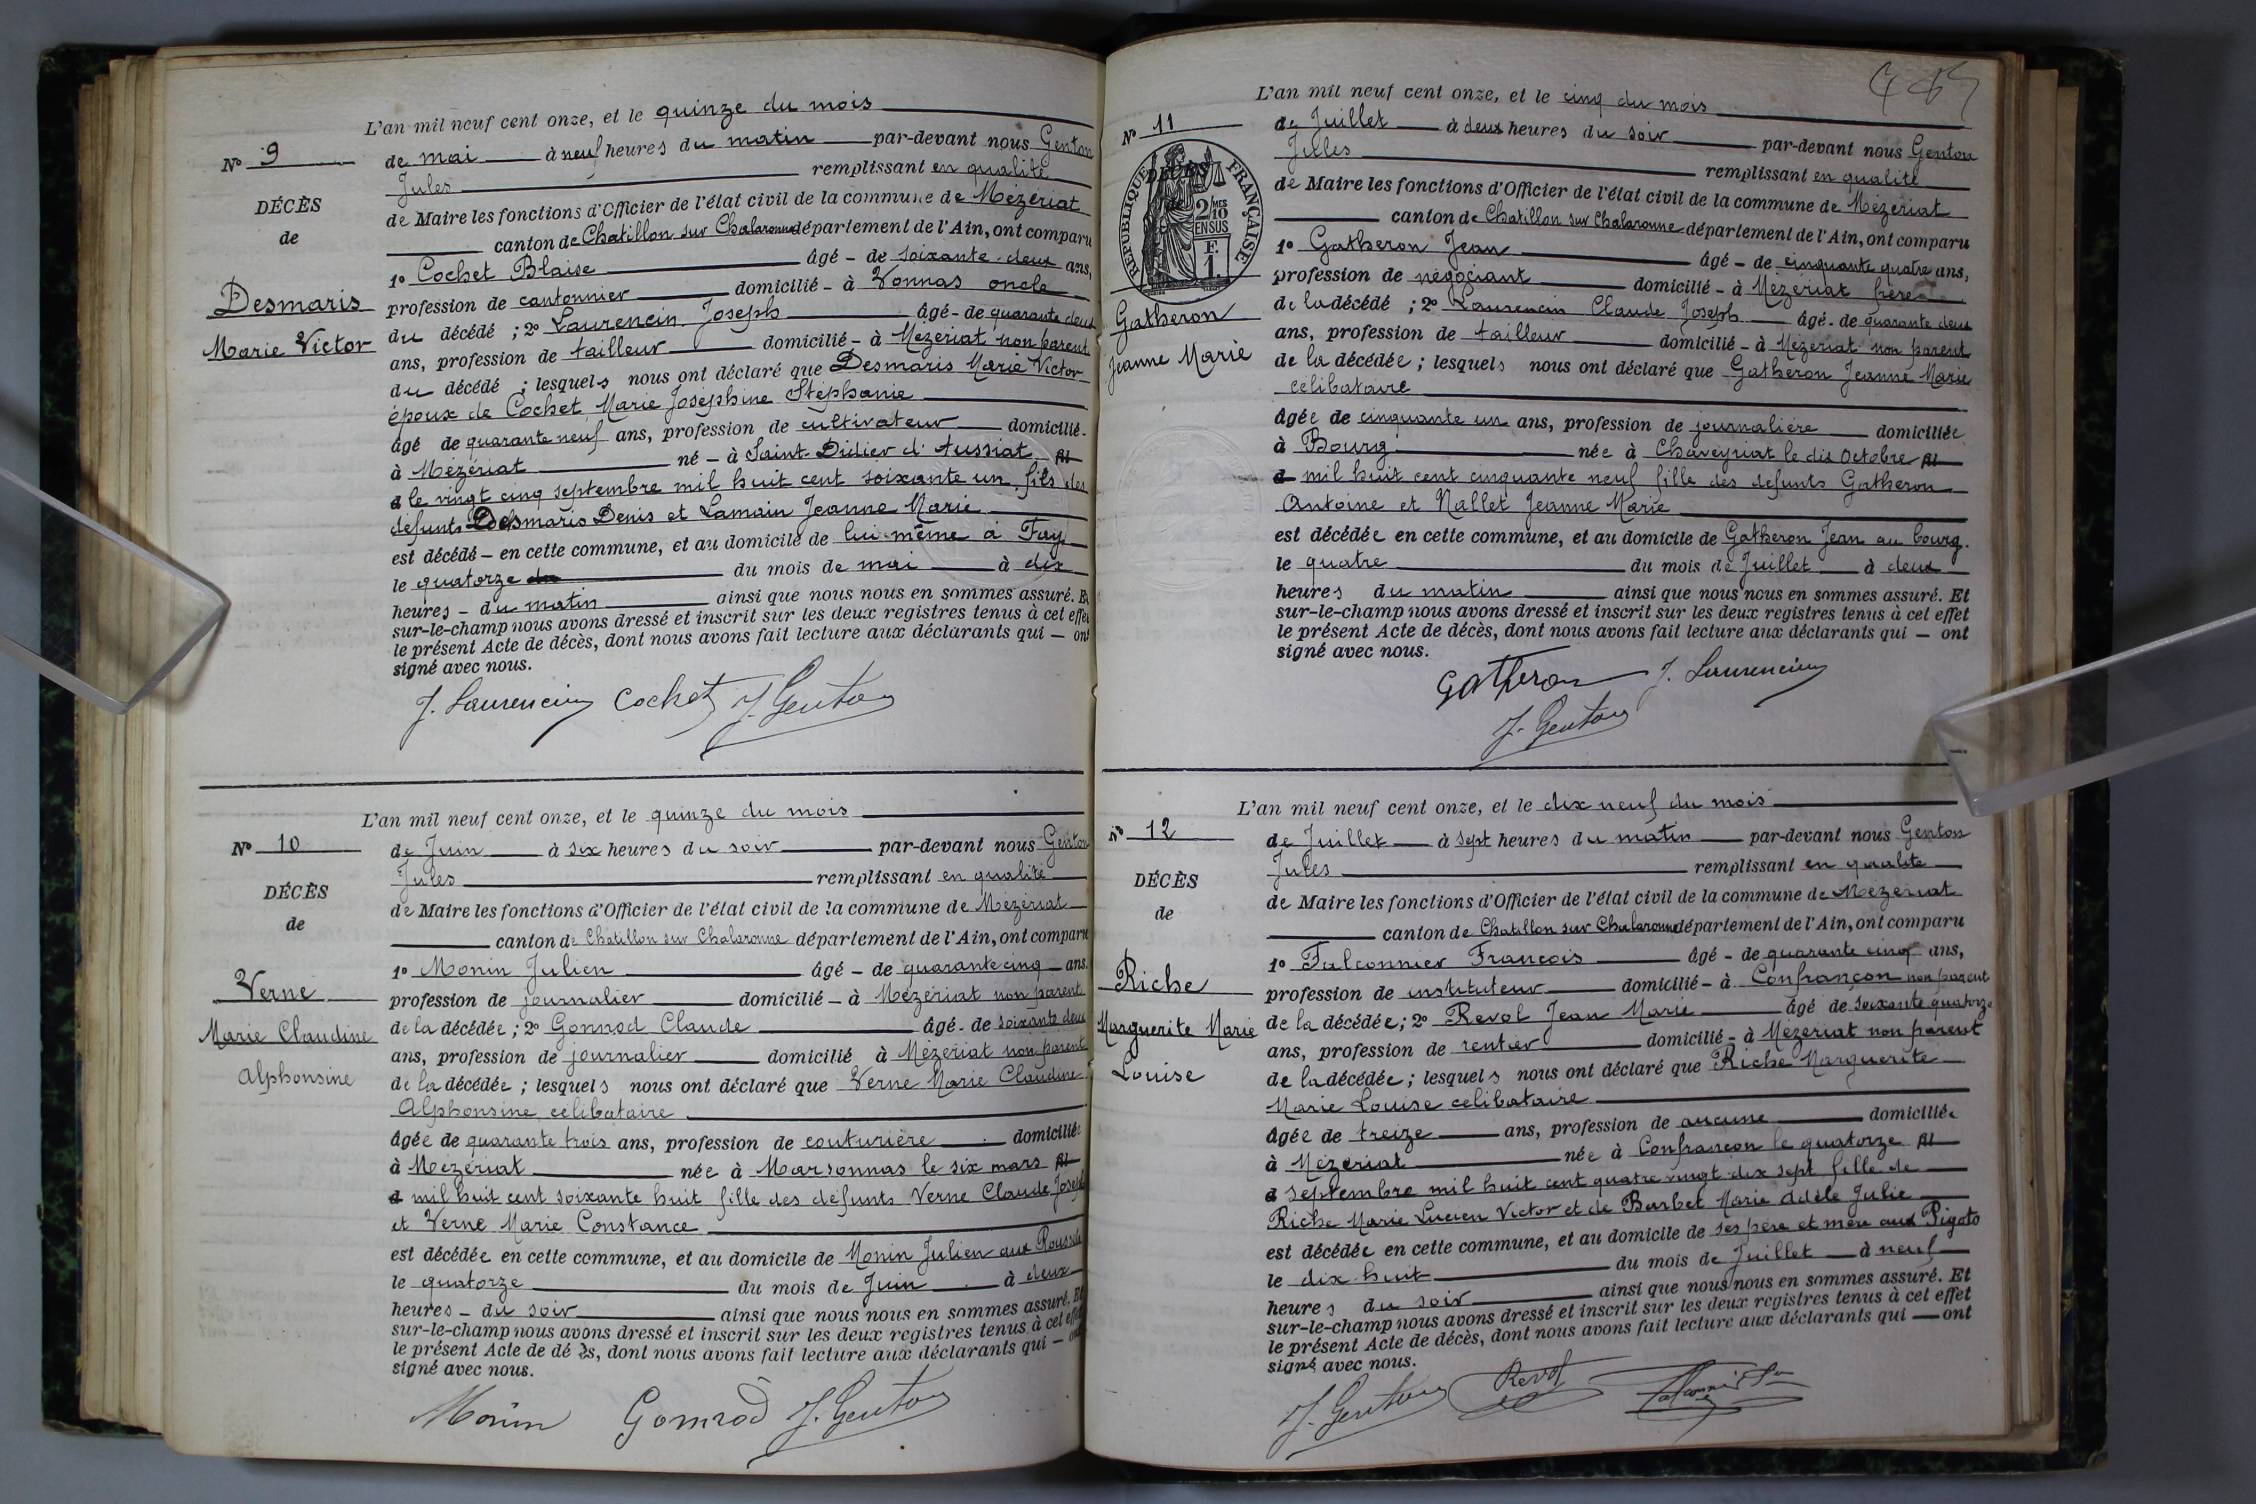 L'an mil neuf cent onze, et le quinze du mois
N° 9
de mai à neuf heures du matin par-devant nous Genton
Jules remplissant en qualité
DÉCÈS
de Maire les fonctions d'Officier de l'état civil de la commune de Mézériat
de
canton de Chatillon sur Chalaronne département de l'Ain, ont comparu
1° Cochet Blaise âgé - de soixante-deux ans,
Desmaris
profession de cantonnier domicilié - à Vonnas oncle
du décédé ; 2° Laurencin Joseph âgé - de quarante deux
Marie Victor
ans, profession de tailleur domicilié - à Mézériat non parent
du décédé ; lesquels nous ont déclaré que Desmaris Marie Victor
époux de Cochet Marie Joséphine Stéphanie
âgé de quarante neuf ans, profession de cultivateur domicilié
à Mézériat né - à Saint-Didier d'Aussiat
le vingt cinq septembre mil huit cent soixante un, fils des
défunts Desmaris Denis et Lamain Jeanne Marie
est décédé - en cette commune, et au domicile de lui-même à Fay
le quatorze du mois de mai à dix
heures - du matin ainsi que nous nous en sommes assuré. Et
sur-le-champ nous avons dressé et inscrit sur les deux registres tenus à cet effet
le présent Acte de décès, dont nous avons fait lecture aux déclarants qui - ont
signé avec nous.
J. Laurencin Cochet J. Genton
L'an mil neuf cent onze, et le quinze du mois
N° 10
de Juin à six heures du soir par-devant nous Genton
Jules remplissant en qualité
DÉCÈS
de Maire les fonctions d'Officier de l'état civil de la commune de Mézériat
de
canton de Chatillon sur Chalaronne département de l'Ain, ont comparu
1° Monin Julien âgé - de quarante cinq ans.
Verne
profession de journalier domicilié - à Mézériat non parent
de la décédée ; 2° Gonnod Claude âgé - de soixante deux
Marie Claudine
ans, profession de journalier domicilié à Mézériat non parent
Alphonsine
de la décédée ; lesquels nous ont déclaré que Verne Marie Claudine
Alphonsine célibataire
âgée de quarante trois ans, profession de couturière domiciliée
à Mézériat née à Marsonnas le six mars
mil huit cent soixante huit fille des défunts Verne Claude Joseph
et Verne Marie Constance
est décédée en cette commune, et au domicile de Monin Julien aux
le quatorze du mois de Juin à deux
heures - du soir ainsi que nous nous en sommes assuré. Et
sur-le-champ nous avons dressé et inscrit sur les deux registres tenus à cet effet
le présent Acte de décès, dont nous avons fait lecture aux déclarants qui - ont
signé avec nous.
Monin Gonnod J. Genton
L'an mil neuf cent onze, et le cinq du mois
N° 11
de Juillet à deux heures du soir par-devant nous Genton
Jules remplissant en qualité
RÉPUBLIQUE FRANÇAISE
DÉCÈS
2/10 MES
EN SUS
F
1.
de Maire les fonctions d'Officier de l'état civil de la commune de Mézériat
canton de Chatillon sur Chalaronne département de l'Ain, ont comparu
1° Gatheron Jean âgé - de cinquante quatre ans,
profession de négociant domicilié - à Mézériat frère
Gatheron
de la décédé ; 2° Laurencin Claude Joseph âgé - de quarante deux
Jeanne Marie
ans, profession de tailleur domicilié - à Mézériat non parent
de la décédée ; lesquels nous ont déclaré que Gatheron Jeanne Marie
célibataire
âgée de cinquante un ans, profession de journalière domiciliée
à Bourg née à Chaveyriat le dix Octobre
mil huit cent cinquante neuf fille des défunts Gatheron
Antoine et Nallet Jeanne Marie
est décédée en cette commune, et au domicile de Gatheron Jean au bourg.
le quatre du mois de Juillet à deux
heures du matin ainsi que nous nous en sommes assuré. Et
sur-le-champ nous avons dressé et inscrit sur les deux registres tenus à cet effet
le présent Acte de décès, dont nous avons fait lecture aux déclarants qui - ont
signé avec nous.
Gatheron J. Laurencin
J. Genton
L'an mil neuf cent onze, et le dix neuf du mois
N° 12
de Juillet à sept heures du matin par-devant nous Genton
Jules remplissant en qualité
DÉCÈS
de Maire les fonctions d'Officier de l'état civil de la commune de Mézériat
de
canton de Chatillon sur Chalaronne département de l'Ain, ont comparu
1° Falconnier François âgé - de quarante cinq ans,
Riche
profession de instituteur domicilié - à Confrançon non parent
Marguerite Marie
de la décédée ; 2° Revol Jean Marie âgé de soixante quatorze
ans, profession de rentier domicilié - à Mézériat non parent
Louise
de la décédée ; lesquels nous ont déclaré que Riche Marguerite
Marie Louise célibataire
âgée de treize ans, profession de aucune domiciliée
à Mézériat née à Confrançon le quatorze
septembre mil huit cent quatre vingt dix sept fille de
Riche Marie Lucien Victor et de Barbet Marie Adèle Julie
est décédée en cette commune, et au domicile de ses père et mère aux Pigots
le dix-huit du mois de Juillet à neuf
heures du soir ainsi que nous nous en sommes assuré. Et
sur-le-champ nous avons dressé et inscrit sur les deux registres tenus à cet effet
le présent Acte de décès, dont nous avons fait lecture aux déclarants qui - ont
signé avec nous.
J. Genton Revol